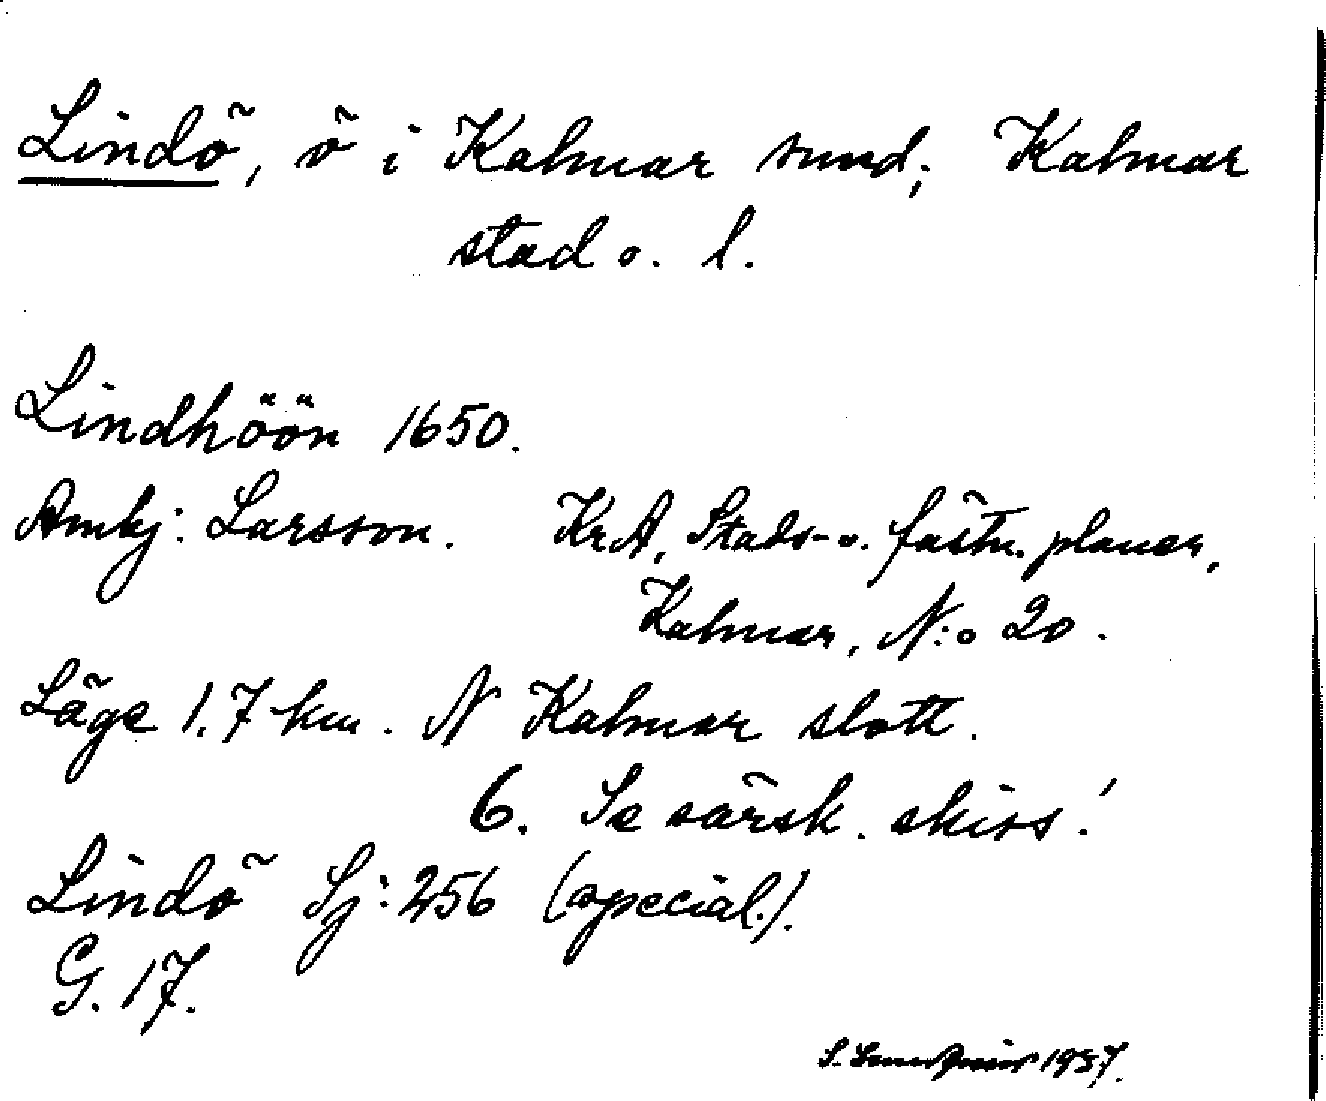 Lindö, ö i Kalmar sund; Kalmar
stad o. l.
Lindhöön 1650.
Ambj: Larsson. KrA, Stads- o. fästn. planer,
Kalmar, N:o 20.
Läge 1.7 km. N Kalmar slott.
6. Se särsk. skiss!
Lindö Sj: 256 (special.).
G. 17.
S. 1937.